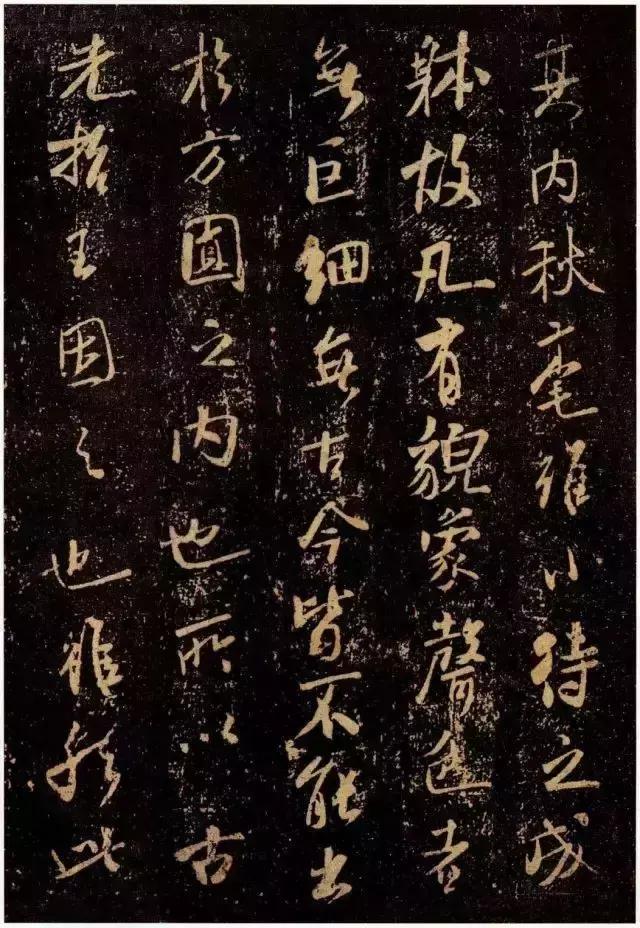 其内秋毫雖小待之成
躰故凡有貌象聲色者
無巨細無古今皆不能出
於方圓之内也所以古
先哲王因之也雖然此